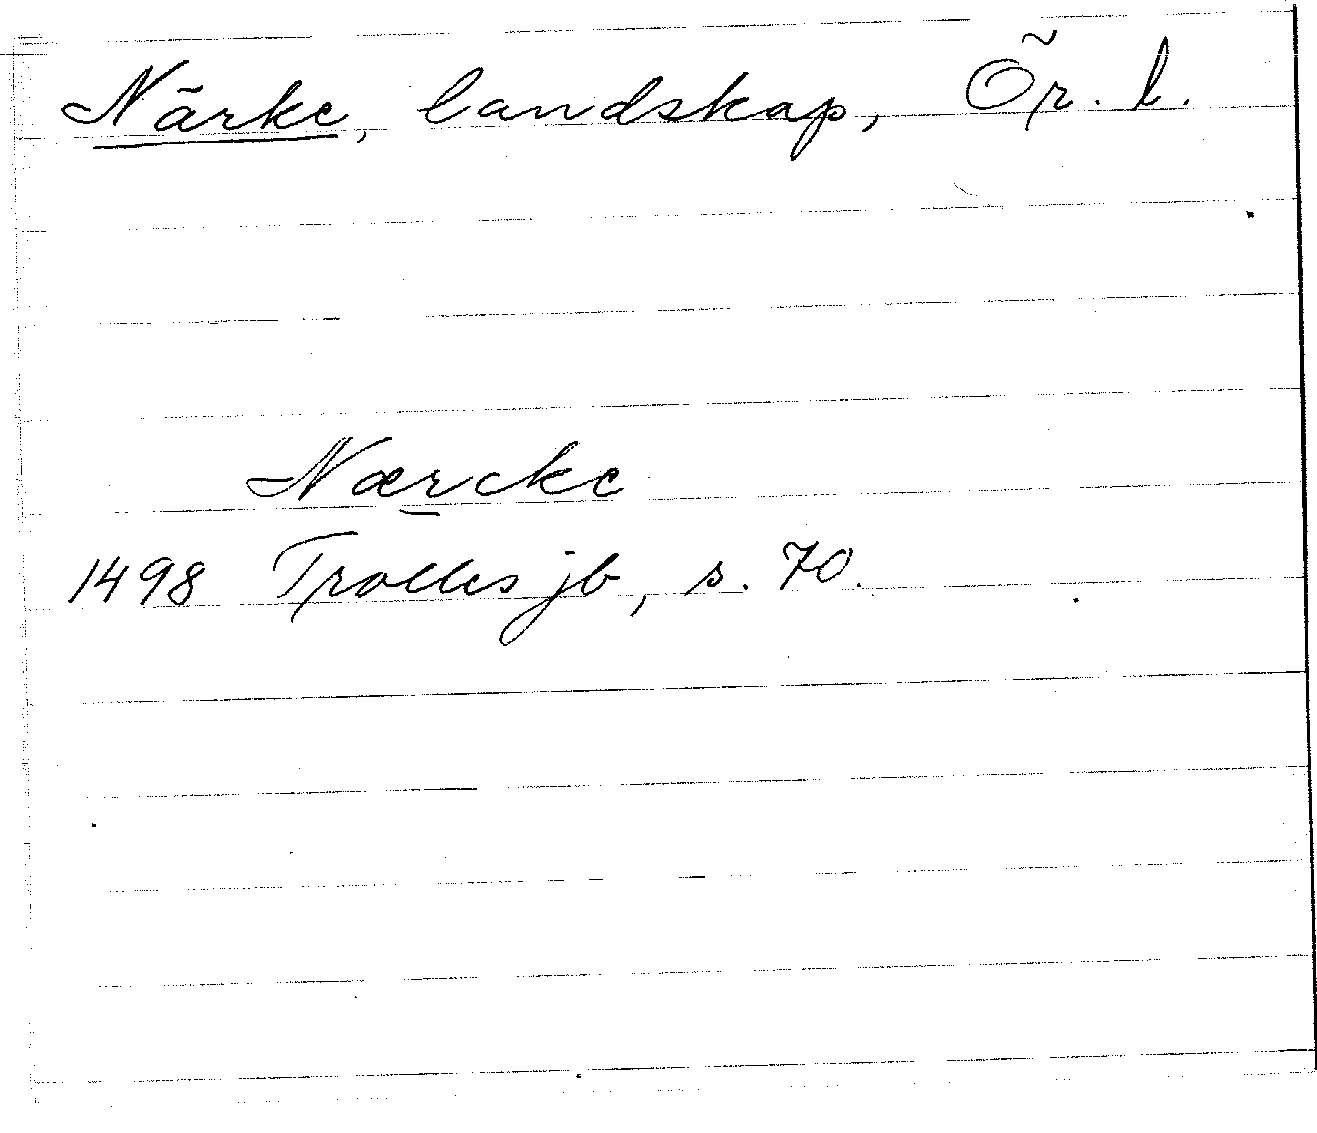 Närke, landskap, Ör. l.
Nærcke
1498 Trolles jb, s. 70.